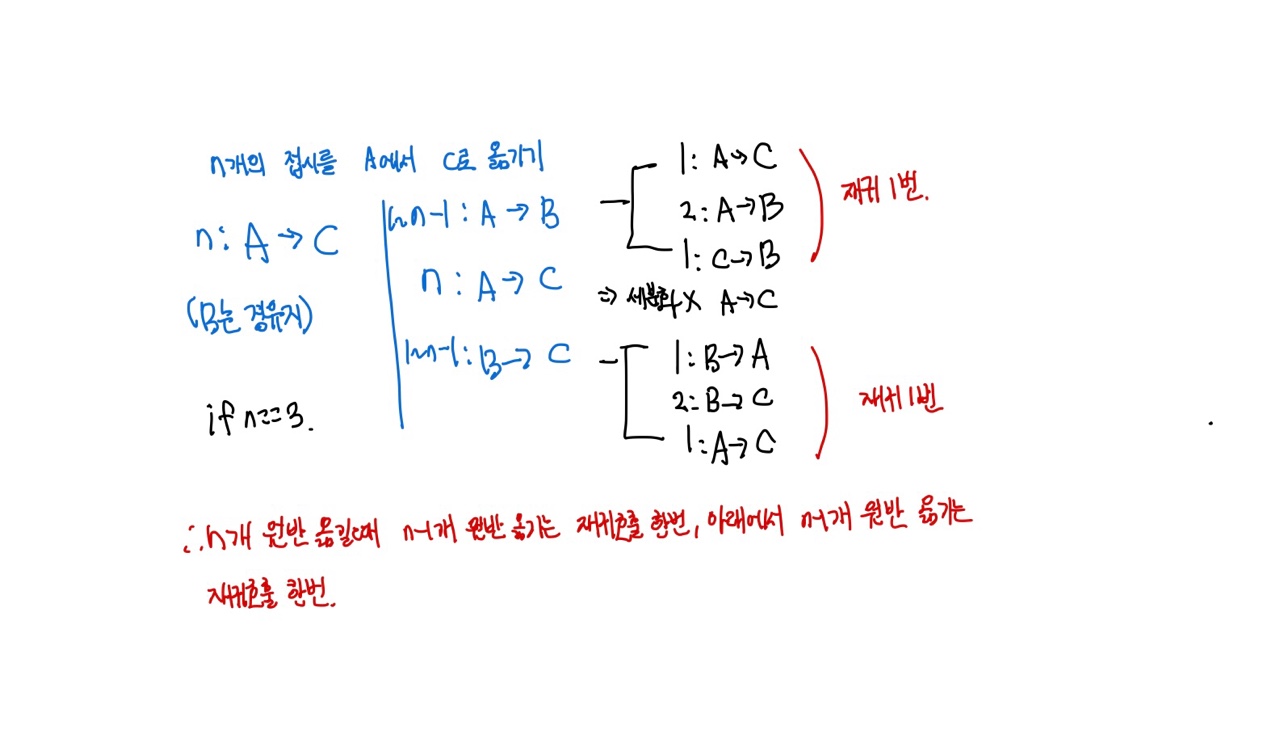 n개의 접시를 A에서 C로 옮기기
n: A → C
(B는 경유지)
if n==3.
1~n-1 : A → B
n : A → C
1~n-1 : B → C
1: A → C
2: A → B
1: C → B
⇒ 세분화 X A → C
1: B → A
2: B → C
1: A → C
재귀 1번.
재귀 1번
∴ n개 원반 옮길때 n-1개 원반 옮기는 재귀호출 한번, 아래에서 n-1개 원반 옮기는
재귀호출 한번.